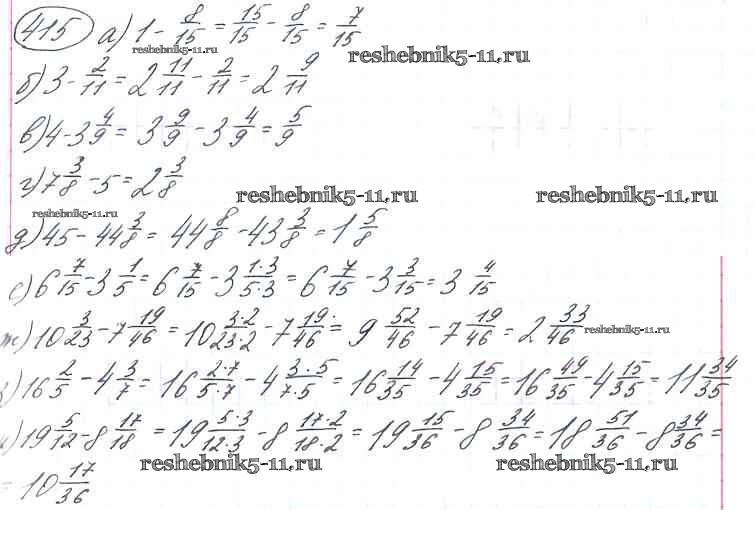 415 а) 1 - 8/15 = 15/15 - 8/15 = 7/15
reshebnik5-11.ru reshebnik5-11.ru
б) 3 - 2/11 = 2 11/11 - 2/11 = 2 9/11
в) 4 - 3 4/9 = 3 9/9 - 3 4/9 = 5/9
г) 7 3/8 - 5 = 2 3/8
reshebnik5-11.ru reshebnik5-11.ru reshebnik5-11.ru
д) 45 - 44 3/8 = 44 8/8 - 43 3/8 = 1 5/8
е) 6 7/15 - 3 1/5 = 6 7/15 - 3 1·3/5·3 = 6 7/15 - 3 3/15 = 3 4/15
ж) 10 3/23 - 7 19/46 = 10 3·2/23·2 - 7 19/46 = 9 52/46 - 7 19/46 = 2 33/46
reshebnik5-11.ru
з) 16 2/5 - 4 3/7 = 16 2·7/5·7 - 4 3·5/7·5 = 16 14/35 - 4 15/35 = 16 49/35 - 4 15/35 = 11 34/35
и) 19 5/12 - 8 17/18 = 19 5·3/12·3 - 8 17·2/18·2 = 19 15/36 - 8 34/36 = 18 51/36 - 8 34/36 =
reshebnik5-11.ru reshebnik5-11.ru
= 10 17/36